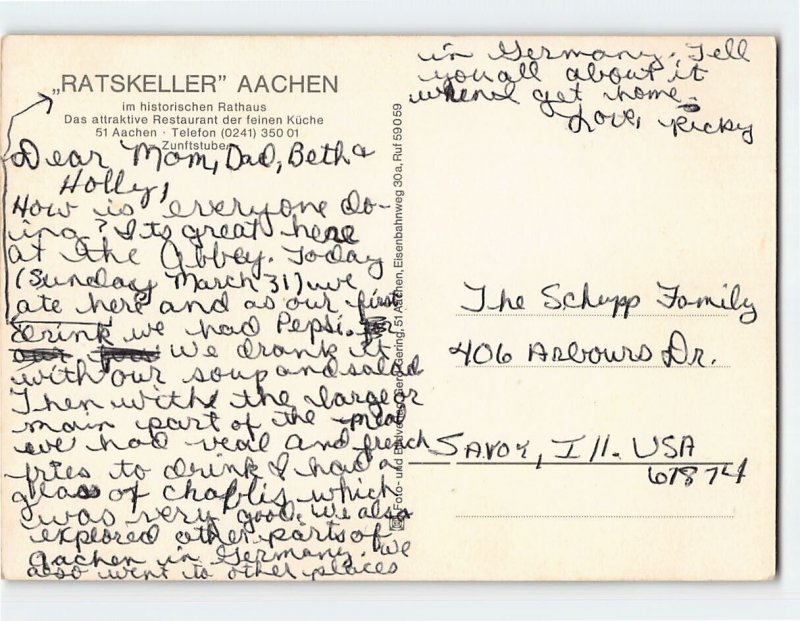 „RATSKELLER” AACHEN
im historischen Rathaus
Das attraktive Restaurant der feinen Küche
51 Aachen · Telefon (0241) 350 01
Zunftstuben
Dear Mom, Dad, Beth &
Holly,
How is everyone do-
ing? Its great here
at the Abbey. Today
(Sunday March 31) we
ate here and as our first
drink we had Pepsi.
we drank it
with our soup and salad
Then with the large or
main part of the meal
we had veal and french
fries to drink I had a
glass of chablis which
was very good. We also
explored other parts of
Aachen in Germany. We
also went to other places
in Germany. Tell
you all about it
when I get home.
Love, Ricky
Foto- und Bildverlag Gerd Gering, 51 Aachen, Eisenbahnweg 30a, Ruf 59059
The Schupp Family
406 Arbours Dr.
Savoy, Ill. USA
61874